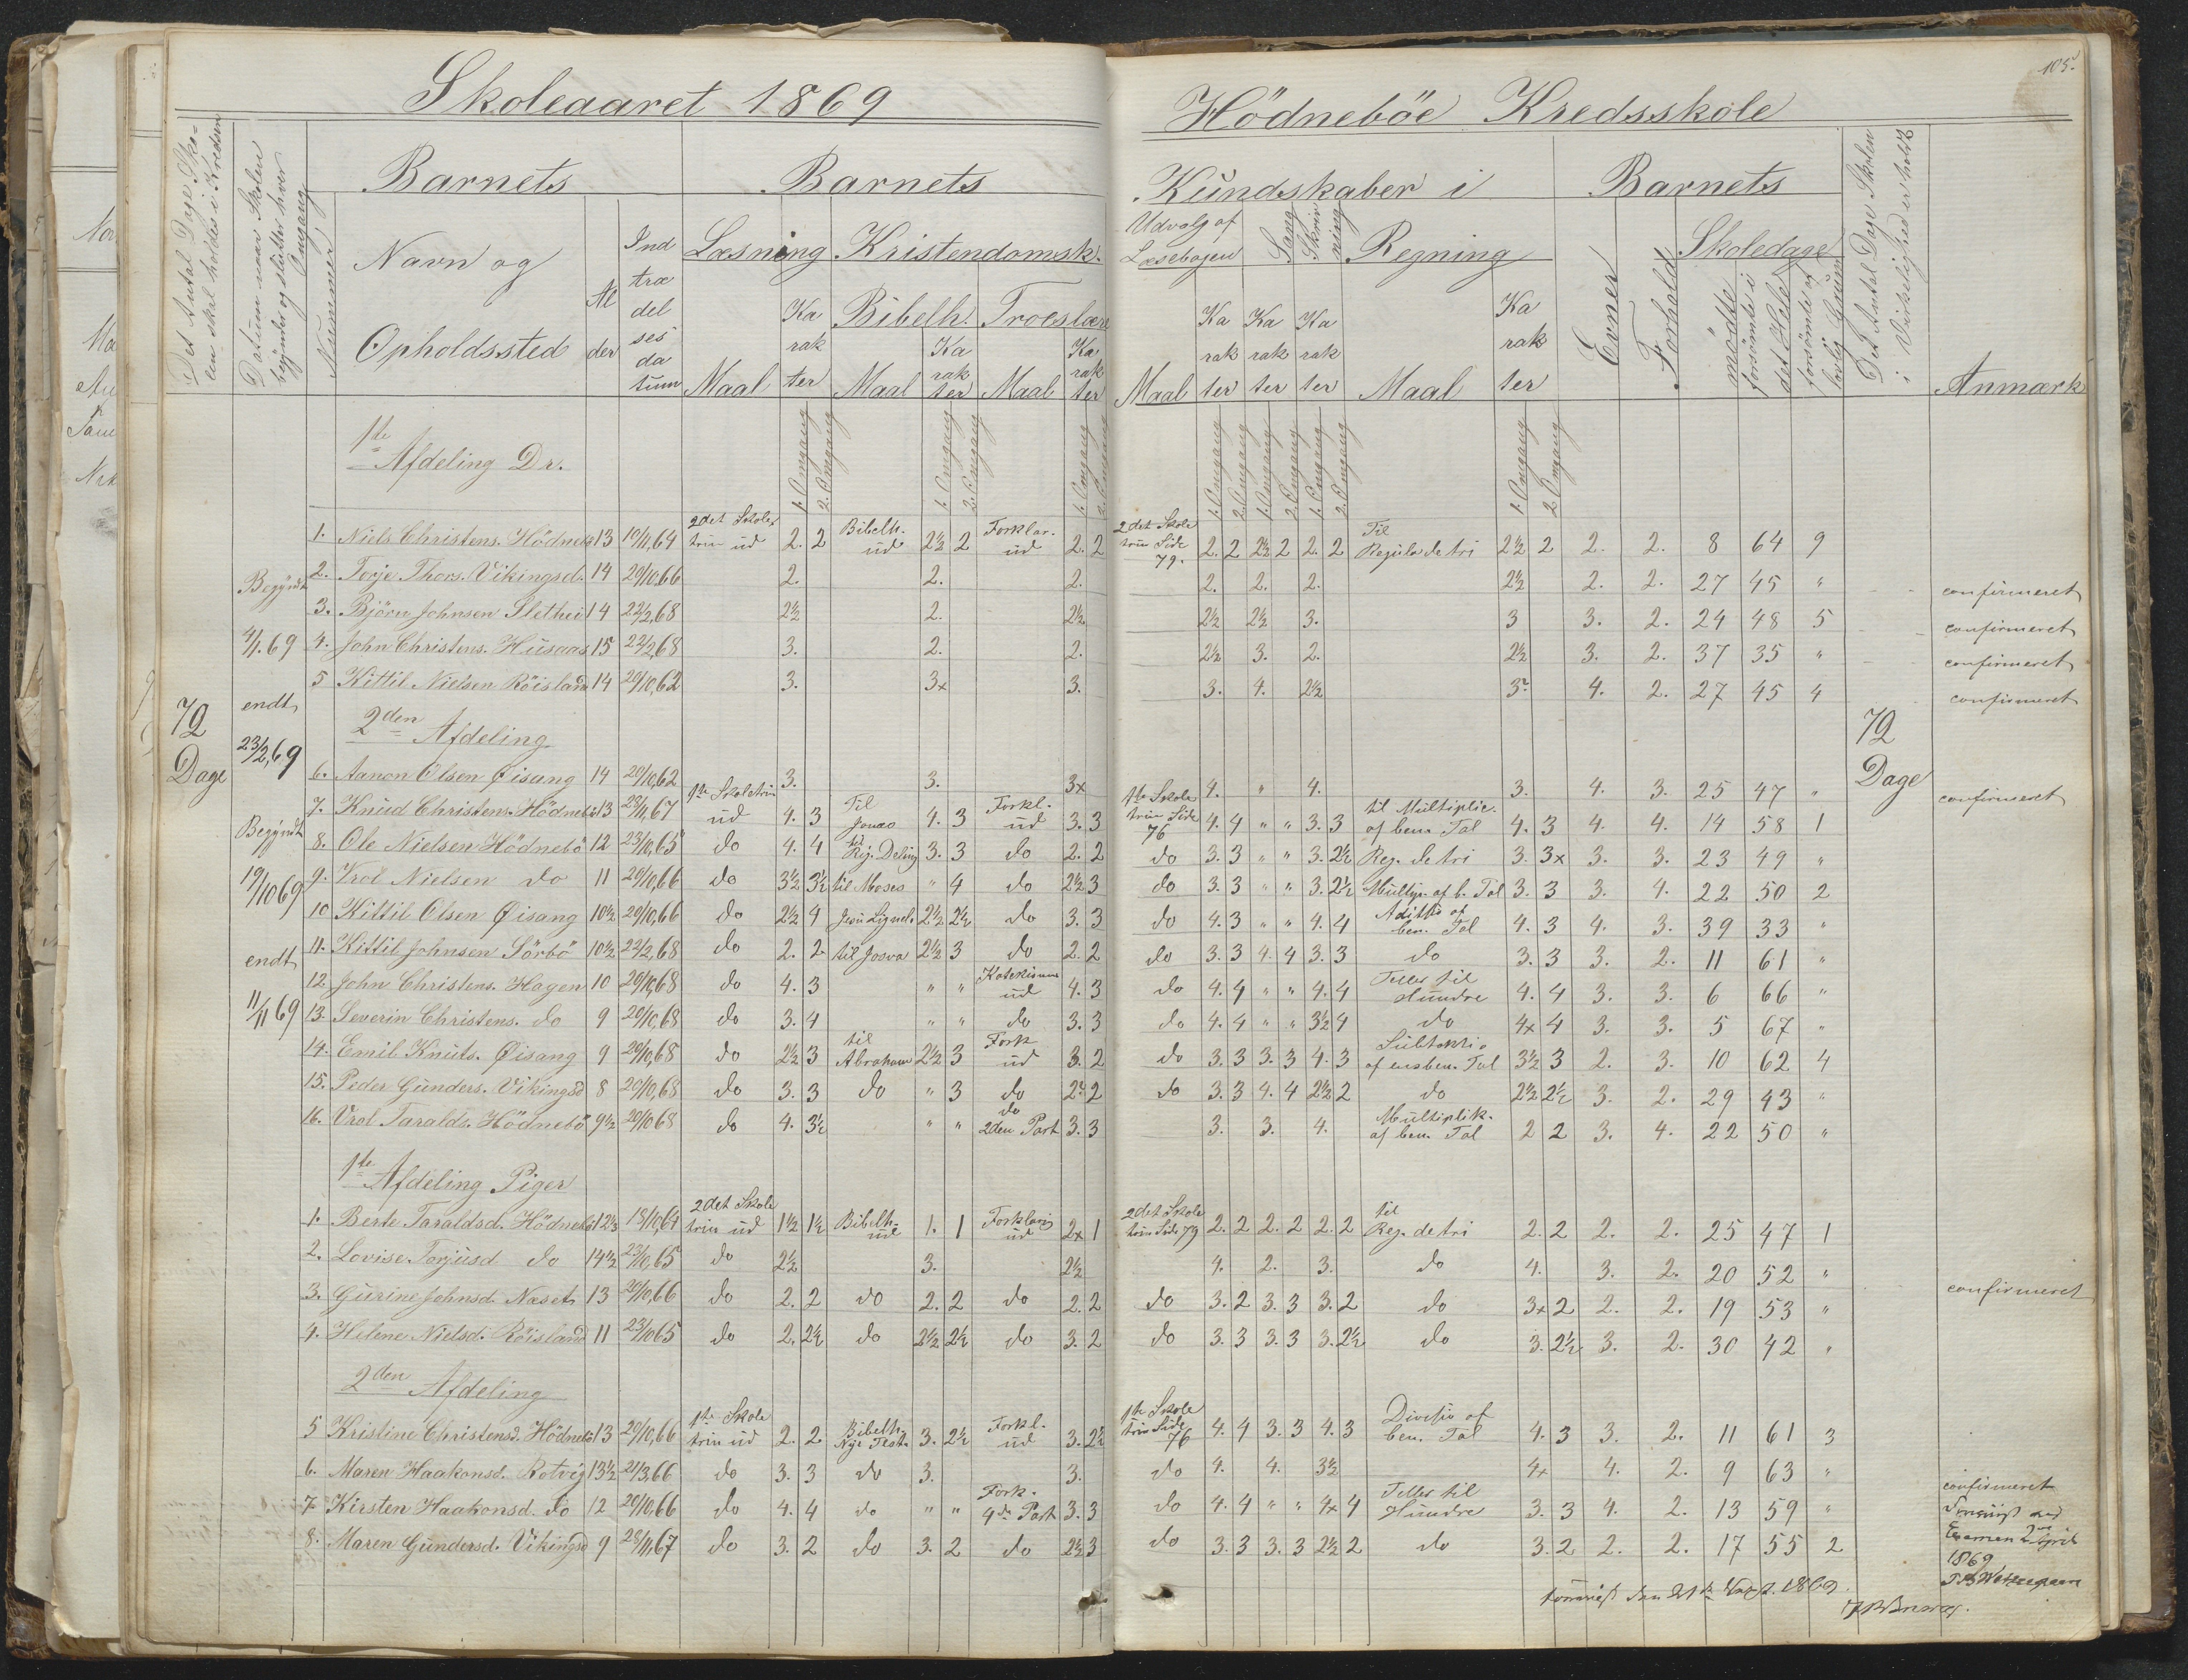 Skoleaaret 1869
Hödneböe Kredsskole
105.
Det Antal Dage Sko-
len skal holdes i Kredsen
Datum naar Skolen
begynder og slutter hver
Omgang
Nummer
Barnets
Navn og
Opholdssted
Al
der
Ind
træ
del
ses
da
tum
Barnets
Læsning
Kristendomsk.
Bibelh.
Troeslære
Maal
Ka
rak
ter
Maal
Ka
rak
ter
Maal
Ka
rak
ter
Kundskaber i
Udvalg af
Læsebogen
Sang
Skriv
ning
Regning
Maal
Ka Ka Ka
rak rak rak
ter ter ter
Maal
Ka
rak
ter
Barnets
Evner
Forhold
Skoledage
mödte
forsömte i
det Hele
forsömte af
lovlig Grund
Det Antal Dage Skolen
i Virkelighed er holdt
Anmærk
1. Omgang 2. Omgang 1. Omgang 2. Omgang 1. Omgang 2. Omgang
1. Omgang 2. Omgang 1. Omgang 2. Omgang 1. Omgang 2. Omgang 1. Omgang 2. Omgang
72
Dage
Begyndt
4/1.69
endt
23/2,69
Begyndt
19/10 69
endt
11/11 69
72
Dage
1te Afdeling Dr.
1. Niels Christens. Hödnebö 13 10/11,64 2det Skoletrin ud 2. 2 Bibelh. ud 2½ 2 Forklar. ud 2. 2 2det Skoletrin Side 79. 2. 2 2½ 2 2. 2 Til Regula de tri 2½ 2 2. 2. 8 64 9
2. Torje Thors. Vikingsd. 14 20/10.66 2. 2. 2. 2. 2. 2. 2½ 2. 2. 27 45 " confirmeret
3. Björn Johnsen Slethei 14 22/2,68 2½ 2. 2½ 2½ 2½ 3. 3 3. 2. 24 48 5 confirmeret
4. John Christens. Husaas 15 22/2,68 3. 2. 2. 2½ 3. 2. 2½ 3. 2. 37 35 " confirmeret
5 Kittil Nielsen Röisland 14 20/10,62 3. 3x 3. 3. 4. 2½ 3 4. 2. 27 45 4 confirmeret
2den Afdeling
6. Aanon Olsen Øisang 14 20/10,62 3. 3. 3x 4. " 4. 3. 4. 3. 25 47 " confirmeret
7. Knud Christens. Hödnebö 13 23/11,67 1te Skoletrin ud 4. 3 Til Jonas 4. 3 Forkl. ud 3. 3 1te Skoletrin Side 76 4. 4 " " 3. 3 til Multiplic. af ben. Tal 4. 3 4. 4. 14 58 1
8. Ole Nielsen Hödnebö 12 23/10,65 do 4. 4 til Rig. Deling 3. 3 do 2. 2 do 3. 3 " " 3. 2½ Reg. de tri 3. 3x 3. 3. 23 49 "
9. Vrol Nielsen do 11 20/10,66 do 3½ 3½ til Moses " 4 do 2½ 3 do 3. 3 " " 3. 2½ Multip. af b. Tal 3. 3 3. 4. 22 50 2
10 Kittil Olsen Øisang 10½ 20/10,66 do 2½ 4 Jesu Lignels. 2½ 2½ do 3. 3 do 4. 3 " " 4. 4 Aditio af ben. Tal 4. 3 4. 3. 39 33 "
11. Kittil Johnsen Sörbö 10½ 22/2,68 do 2. 2 til Josva 2½ 3 do 2. 2 do 3. 3 4. 4 3. 3 do 3. 3 3. 2. 11 61 "
12 John Christens. Hagen 10 20/10,68 do 4. 3 " " Katekisme ud 4. 3 do 4. 4 " " 4. 4 Teller til Hundre 4. 4 3. 3. 6 66 "
13. Severin Christens. do 9 20/10,68 do 3. 4 " " do 3. 3 do 4. 4 " " 3½ 4 do 4x 4 3. 3. 5 67 "
14. Emil Knuds. Øisang 9 20/10,68 do 2½ 3 til Abraham 2½ 3 Fork ud 3. 2 do 3. 3 3. 3 4. 3 Subtaktio af ensben. Tal 3½ 3 2. 3. 10 62 4
15. Peder Gunders. Vikingsd 8 20/10,68 do 3. 3 do " 3 do 2 2 do 3. 3 4. 4 2½ 2 do 2½ 2½ 3. 2. 29 43 "
16. Vrol Taralds. Hödnebö 9½ 20/10 68 do 4. 3½ " " do 2den Part 3. 3 3. 3. 4. Multiplik. af ben. Tal 2 2 3. 4. 22 50 "
1te Afdeling Piger
1. Berte Taraldsd. Hödnebö 12½ 13/10,64 2det Skoletrin ud 1½ 1½ Bibelh. ud 1. 1 Forklaring ud 2x 1 2det Skoletrin Side 79 2. 2 2. 2 2. 2 til Reg. de tri 2. 2 2. 2. 25 47 1
2. Lovise Torjusd do 14½ 23/10,65 do 2½ 3. 2½ 4. 2. 3. do 4. 3. 2. 20 52 " confirmeret
3. Gurine Johnsd. Næset 13 20/10,66 do 2. 2 do 2. 2 do 2. 2 do 3. 2 3. 3 3. 2 do 3x 2 2. 2. 19 53 "
4. Helene Nielsd. Röisland 11 23/10 65 do 2. 2½ do 2½ 2½ do 3. 2 do 3. 3 3. 3 3. 2½ do 3. 2½ 3. 2. 30 42 "
2den Afdeling
5 Kristine Christensd. Hödnebö 13 20/10,66 1te Skoletrin ud 2. 2 Bibelh. Nye Test. 3. 2½ Forkl. ud 3. 2½ 1te Skoletrin Side 76 4. 4 3. 3 4. 3 Divisio af ben. Tal 4. 3 3. 2. 11 61 3
6. Maren Haakonsd. Rotvig 13½ 21/3,66 do 3. 3 do 3. 3. do 4. 4. 3½ 4x 4. 2. 9 63 " confirmeret
7 Kirsten Haakonsd. do 12 20/10,66 do 4. 4 do " " Fork. 4de Part 3. 3 do 4. 4 " " 4x 4 Teller til Hundre 3. 3 4. 2. 13 59 "
8. Maren Gundersd. Vikingsd 9 23/11,67 do 3. 2 do 3. 2 do 2½ 3 do 3. 3 3. 3 2½ 2 do 3. 2 2. 2. 17 55 2
Examen April
1869